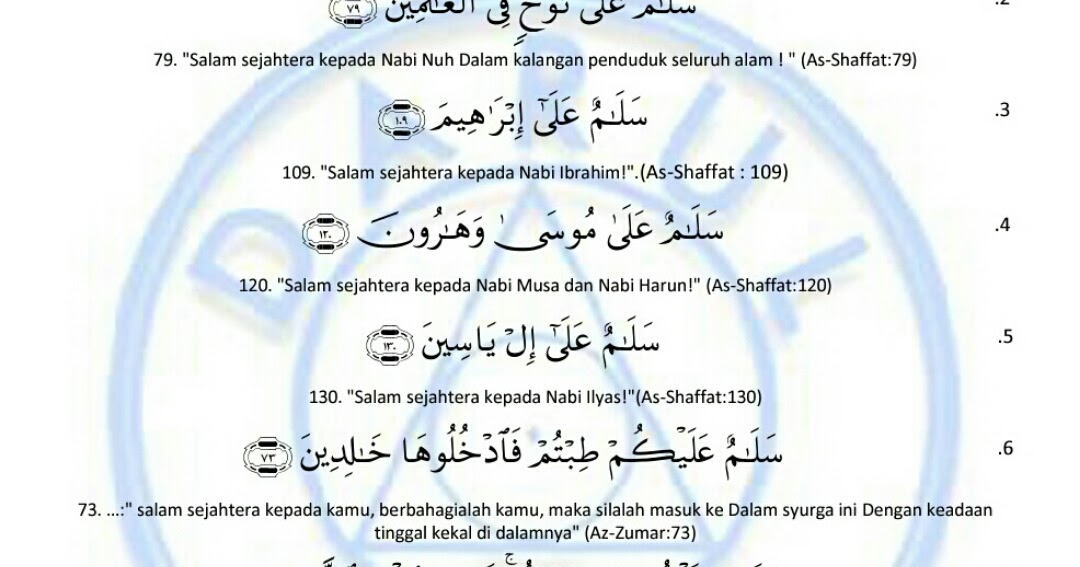 سَلَـٰمٌ عَلَىٰ نُوحٍ فِى ٱلْعَـٰلَمِينَ ٧٩ .2
79. "Salam sejahtera kepada Nabi Nuh Dalam kalangan penduduk seluruh alam ! " (As-Shaffat:79)
سَلَـٰمٌ عَلَىٰٓ إِبْرَٰهِيمَ ١٠٩ .3
109. "Salam sejahtera kepada Nabi Ibrahim!".(As-Shaffat : 109)
سَلَـٰمٌ عَلَىٰ مُوسَىٰ وَهَـٰرُونَ ١٢٠ .4
120. "Salam sejahtera kepada Nabi Musa dan Nabi Harun!" (As-Shaffat:120)
سَلَـٰمٌ عَلَىٰٓ إِلْ يَاسِينَ ١٣٠ .5
130. "Salam sejahtera kepada Nabi Ilyas!"(As-Shaffat:130)
سَلَـٰمٌ عَلَيْكُمْ طِبْتُمْ فَٱدْخُلُوهَا خَـٰلِدِينَ ٧٣ .6
73. ...:" salam sejahtera kepada kamu, berbahagialah kamu, maka silalah masuk ke Dalam syurga ini Dengan keadaan
tinggal kekal di dalamnya" (Az-Zumar:73)
DARUL